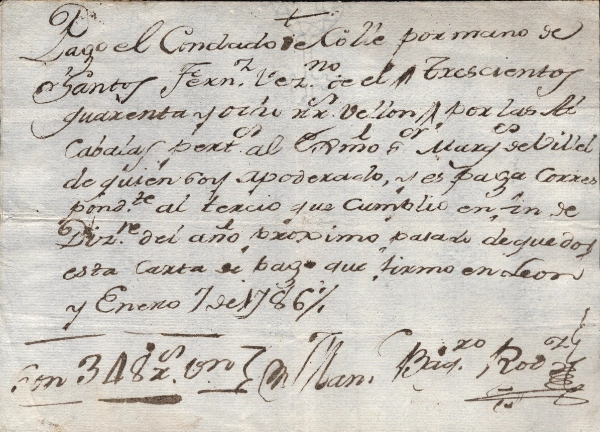 Pago el Condado de Colle por mano de
Santos Fernz. Vezno. de el, trescientos
quarenta y ocho rrs. Vellon, por las Al
Cabalas pertes. al Exmo. Sor. Marqs. de Villel
de quien soy apoderado, y es paga Corres
pondte. al tercio que Cumplio en fin de
Dizre. del año proximo pasado de que doy
esta Carta de pago que firmo en Leon
y Enero 7 de 1786
Son 348 rs. Vn Man.